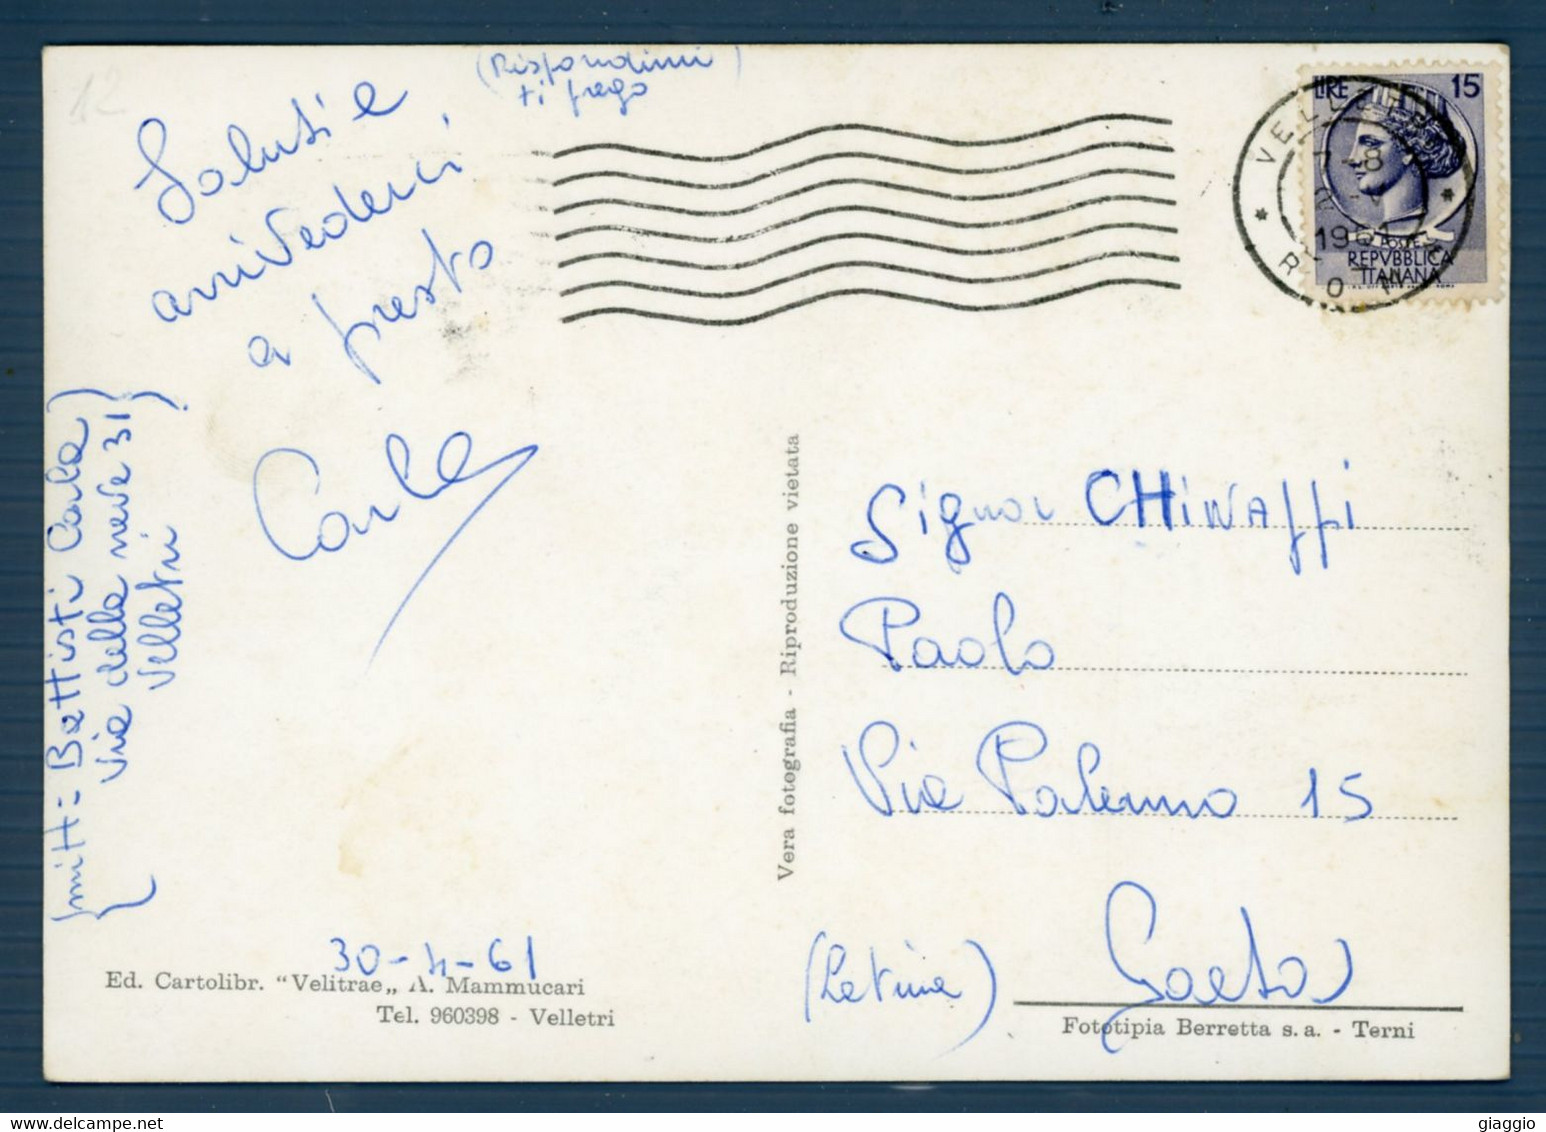 12
(Rispondimi
ti prego)
Saluti e
arrivederci
a presto
Carla
{mitt= Battisti Carla}
{Via della neve 31}
Velletri
30-4-61
Ed. Cartolibr. "Velitrae„ A. Mammucari
Tel. 960398 - Velletri
Vera fotografia - Riproduzione vietata
LIRE 15
POSTE
REPVBBLICA
ITALIANA
* VELLETRI *
ROMA
7-8
1961
Signor CHiNAffi
Paolo
Via Palermo 15
(Latina) Gaeta
Fototipia Berretta s.a. - Terni
giaggio